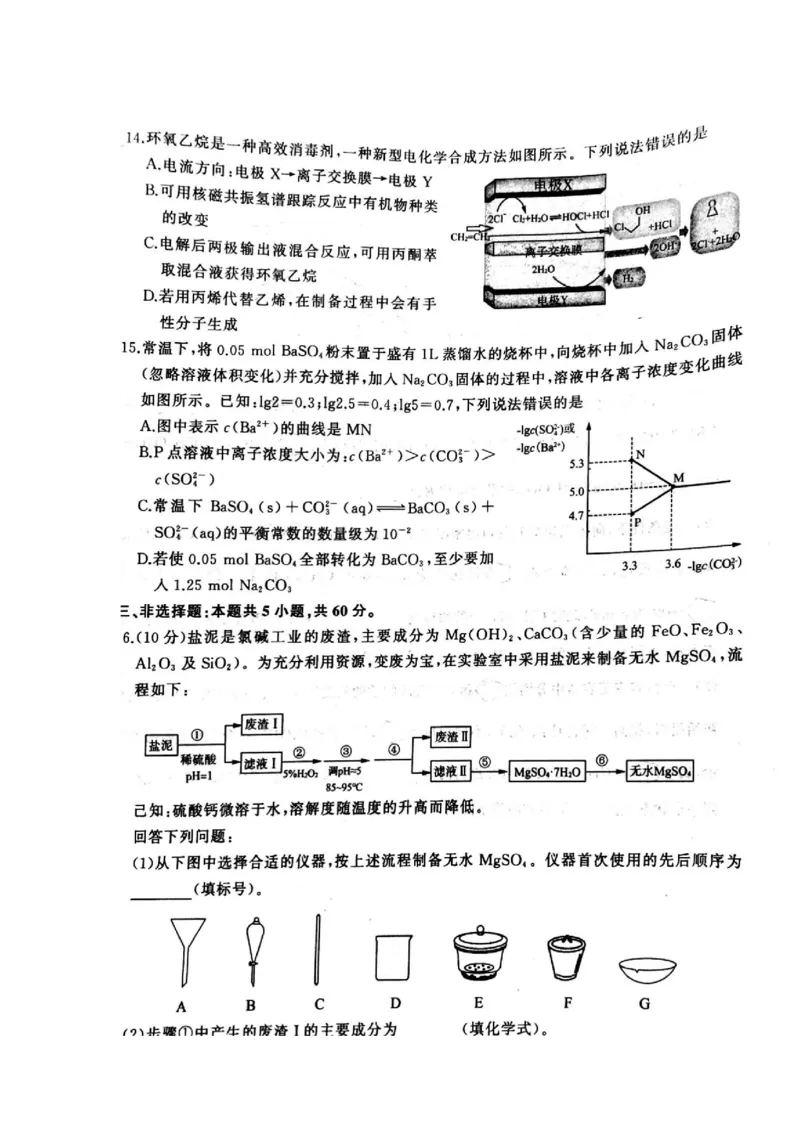 14.环氧乙烷是一种高效消毒剂,一种新型电化学合成方法如图所示。下列说法错误的是
A.电流方向:电极 X→离子交换膜→电极 Y
B.可用核磁共振氢谱跟踪反应中有机物种类
的改变
C.电解后两极输出液混合反应,可用丙酮萃
取混合液获得环氧乙烷
D.若用丙烯代替乙烯,在制备过程中会有手
性分子生成
电极X
2Cl⁻ Cl₂+H₂O⇌HOCl+HCl
OH
Cl
+HCl
CH₂=CH₂
离子交换膜
2OH⁻
+
2Cl⁻+2H₂O
2H₂O
H₂
电极Y
15.常温下,将 0.05 mol BaSO₄粉末置于盛有 1L 蒸馏水的烧杯中,向烧杯中加入 Na₂CO₃固体
(忽略溶液体积变化)并充分搅拌,加入 Na₂CO₃固体的过程中,溶液中各离子浓度变化曲线
如图所示。已知:lg2=0.3;lg2.5=0.4;lg5=0.7,下列说法错误的是
A.图中表示 c(Ba²⁺)的曲线是 MN
B.P 点溶液中离子浓度大小为:c(Ba²⁺)>c(CO₃²⁻)>
c(SO₄²⁻)
C.常温下 BaSO₄(s)+CO₃²⁻(aq)⇌BaCO₃(s)+
SO₄²⁻(aq)的平衡常数的数量级为 10⁻²
D.若使 0.05 mol BaSO₄全部转化为 BaCO₃,至少要加
入 1.25 mol Na₂CO₃
-lgc(SO₄²⁻)或
-lgc(Ba²⁺)
5.3
N
M
5.0
4.7
P
3.3 3.6 -lgc(CO₃²⁻)
三、非选择题:本题共 5 小题,共 60 分。
6.(10 分)盐泥是氯碱工业的废渣,主要成分为 Mg(OH)₂、CaCO₃(含少量的 FeO、Fe₂O₃、
Al₂O₃ 及 SiO₂)。为充分利用资源,变废为宝,在实验室中采用盐泥来制备无水 MgSO₄,流
程如下:
盐泥
①
稀硫酸
pH=1
废渣Ⅰ
滤液Ⅰ
②
5%H₂O₂
③
调pH≈5
85~95℃
④
废渣Ⅱ
滤液Ⅱ
⑤
MgSO₄·7H₂O
⑥
无水MgSO₄
己知:硫酸钙微溶于水,溶解度随温度的升高而降低。
回答下列问题:
(1)从下图中选择合适的仪器,按上述流程制备无水 MgSO₄。仪器首次使用的先后顺序为
______(填标号)。
A B C D E F G
(2)步骤①中产生的废渣Ⅰ的主要成分为 (填化学式)。